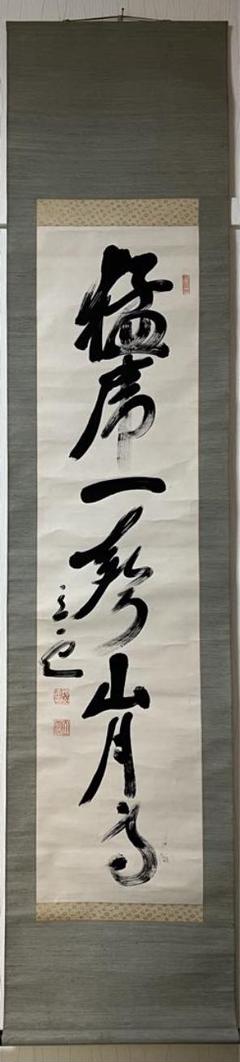 猛虎一声山月高